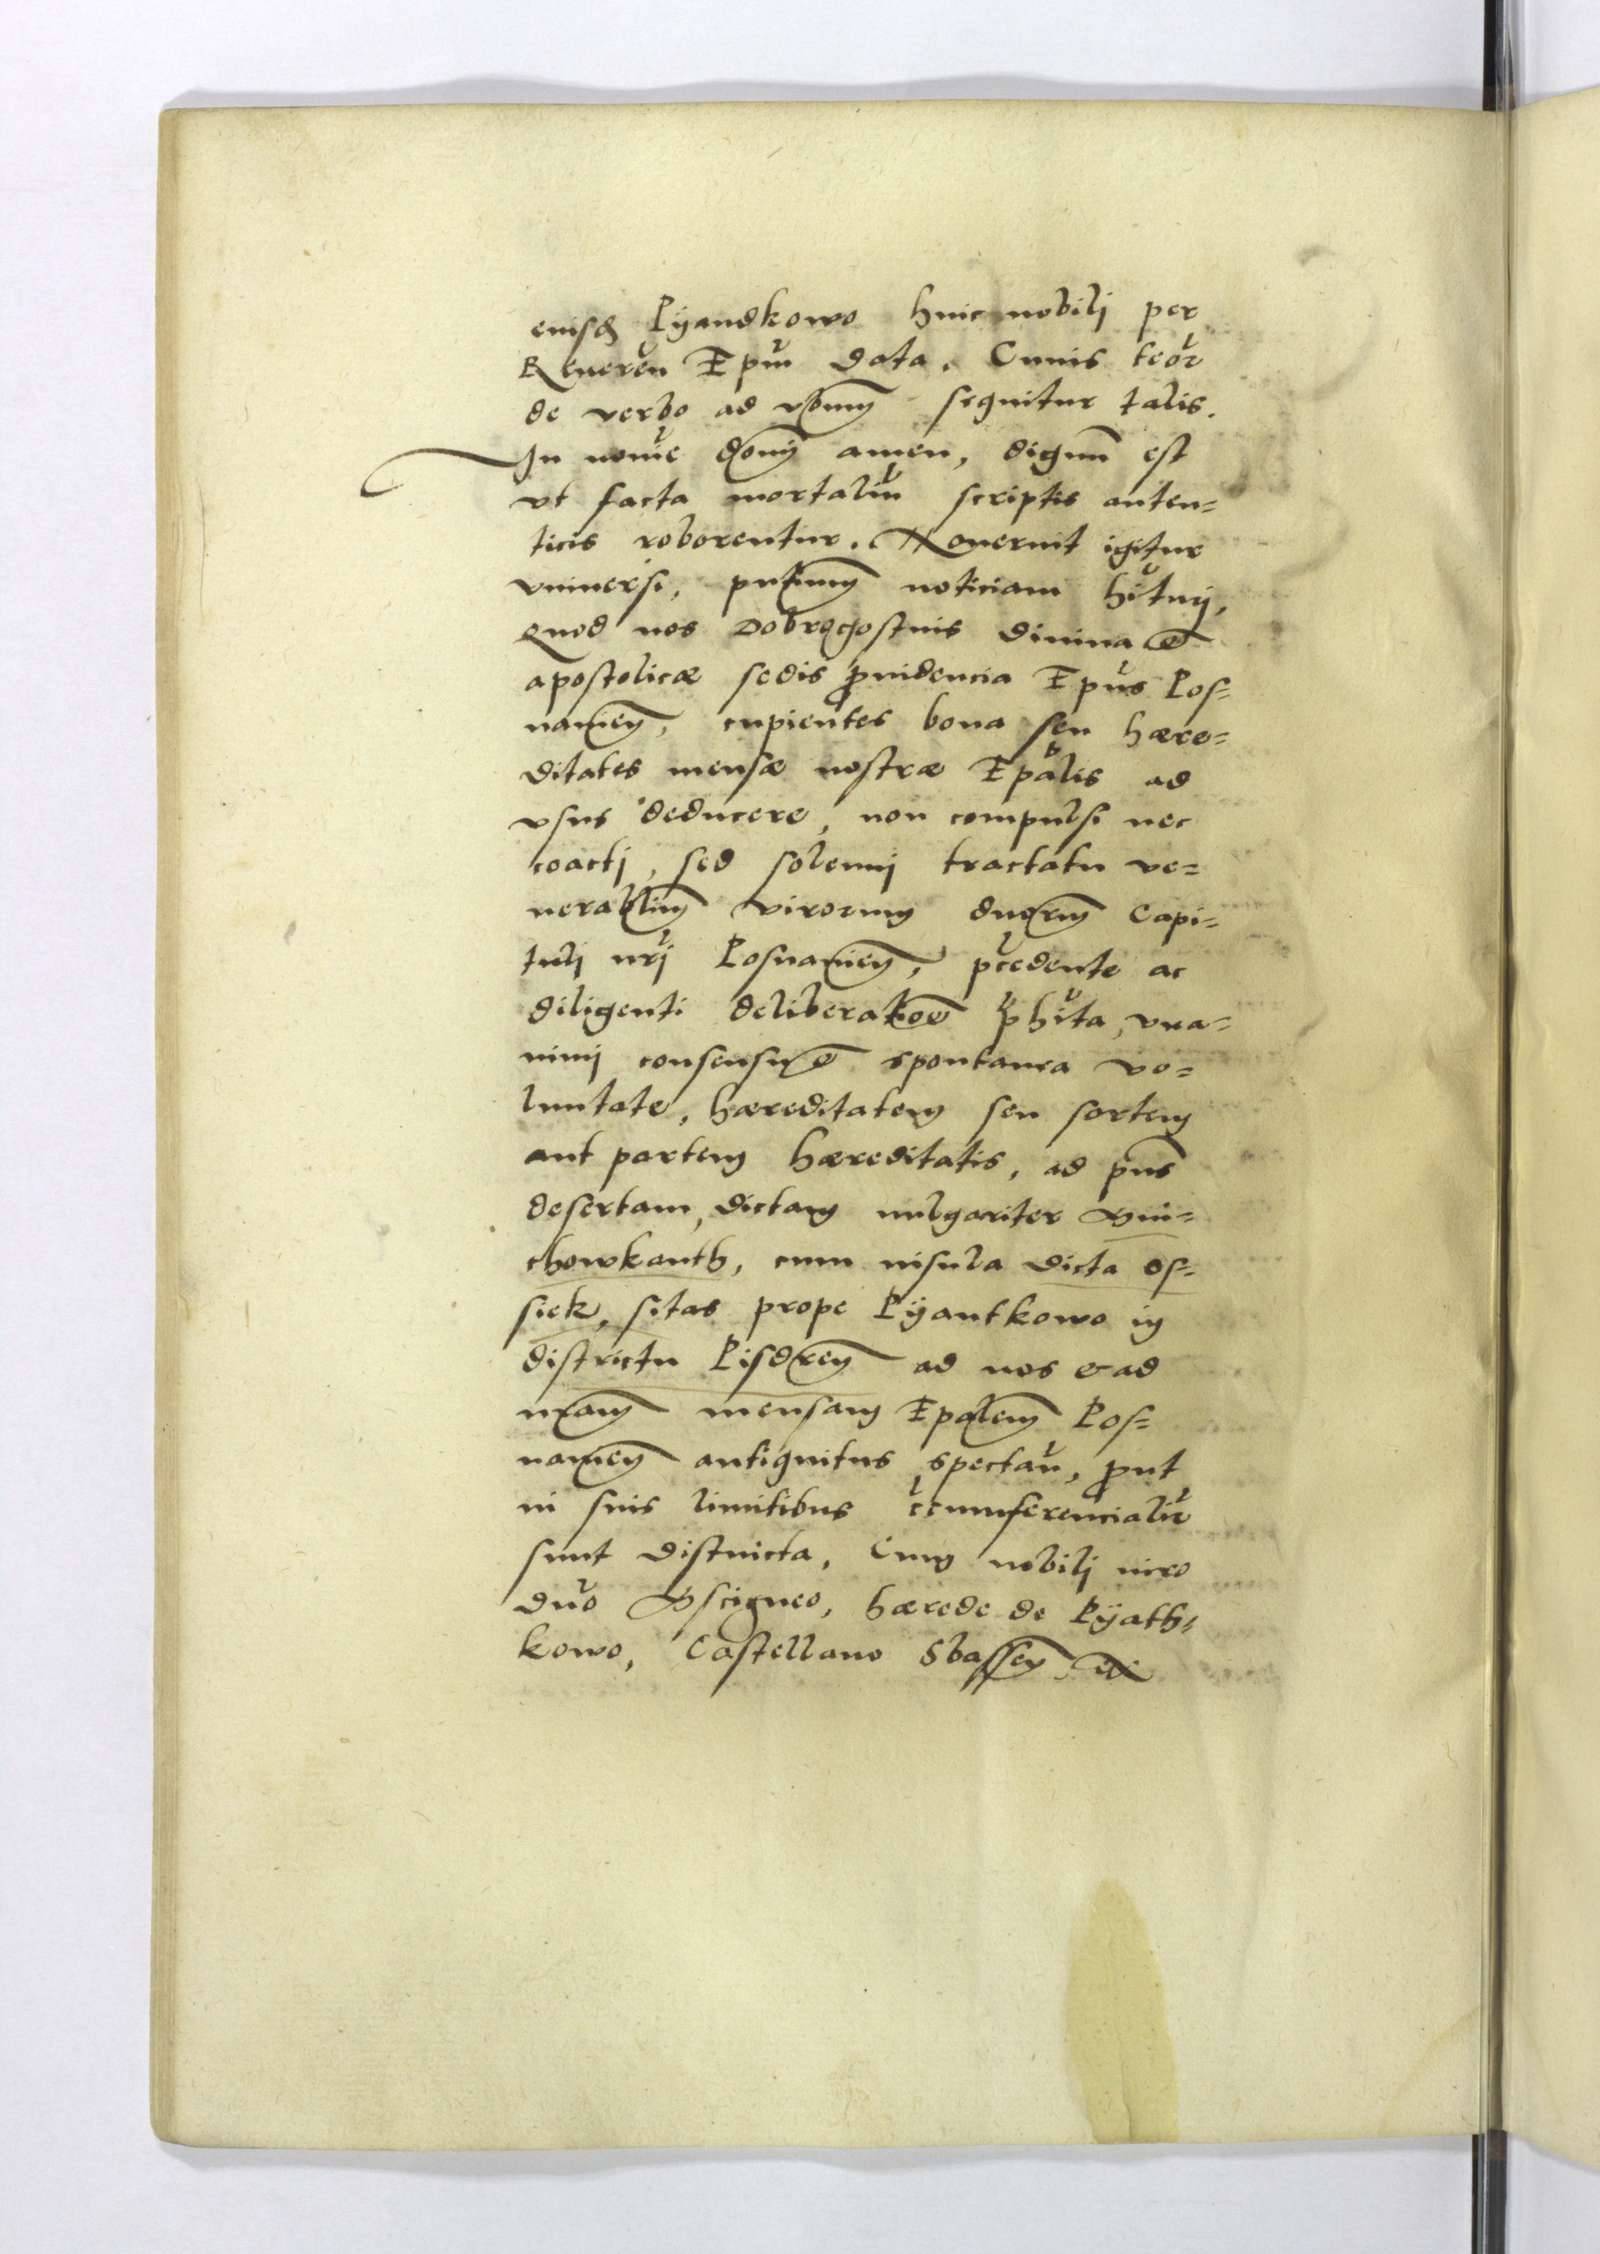 eiusd Pyandkowo huic nobili per
Reueren Epm data. Cuius teor
de verbo ad vbum sequitur talis.
In nomie domi amen, dignum est
vt facta mortaliu scriptis auten=
ticis roborentur. Nouerint igitur
vniuersi, pntium noticiam hituri,
quod nos Dobrogostius diuina et
apostolicæ sedis prouidencia Epus Pos=
nanien, cupientes bona seu hære=
ditates mensæ nostræ Epalis ad
vsus deducere, non compulsi nec
coacti, sed solenni tractatu ve=
nerablium virorum dnorum Capi=
tuli nri Posnanien, præcedente ac
diligenti deliberatoe phita, vna=
nimi consensu et spontanea vo=
luntate, hæreditatem seu sortem
aut partem hæreditatis, ad pns
desertam, dictam uulgariter
chowkanth, cum insula dicta Os=
siek, sitas prope Pyantkowo in
districtu Pisdren ad nos et ad
nram mensam Epalem Pos=
nanien antiquitus spectan, prout
in suis limitibus circumferencialir
sunt distincta, Cum nobili uiro
dno Msczigneo, hærede de Pyath=
kowo, Castellano Sbassen, et